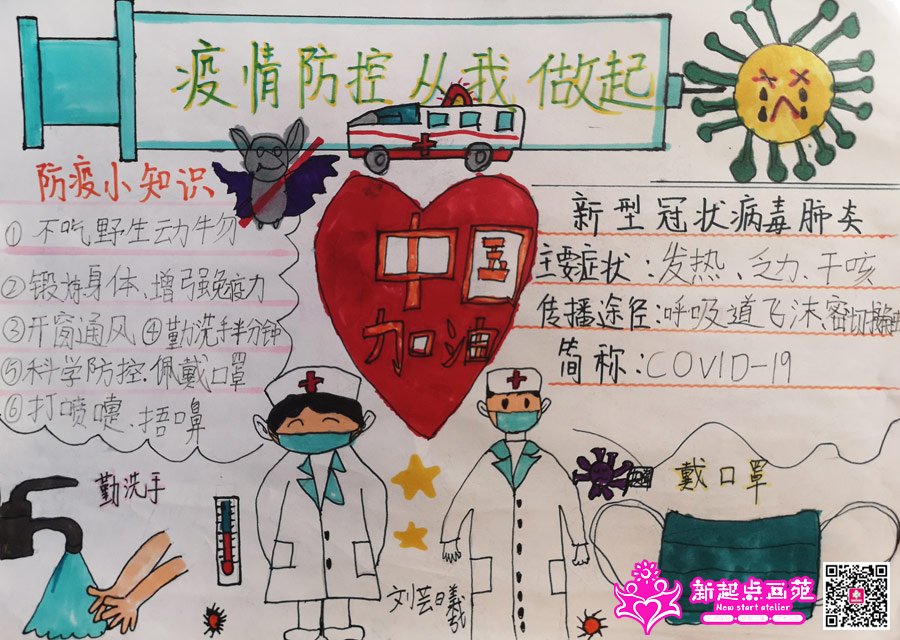 疫情防控从我做起
防疫小知识
①不吃野生动牛勿
②锻炼身体、增强免疫力
③开窗通风 ④勤洗手半分钟
⑤科学防控.佩戴口罩
⑥打喷嚏、捂嘴
中国
加油
新型冠状病毒肺炎
主要症状:发热、乏力、干咳
传播途径:呼吸道飞沫、密切接触
简称:COVID-19
勤洗手
戴口罩
新起点画苑
New start atelier